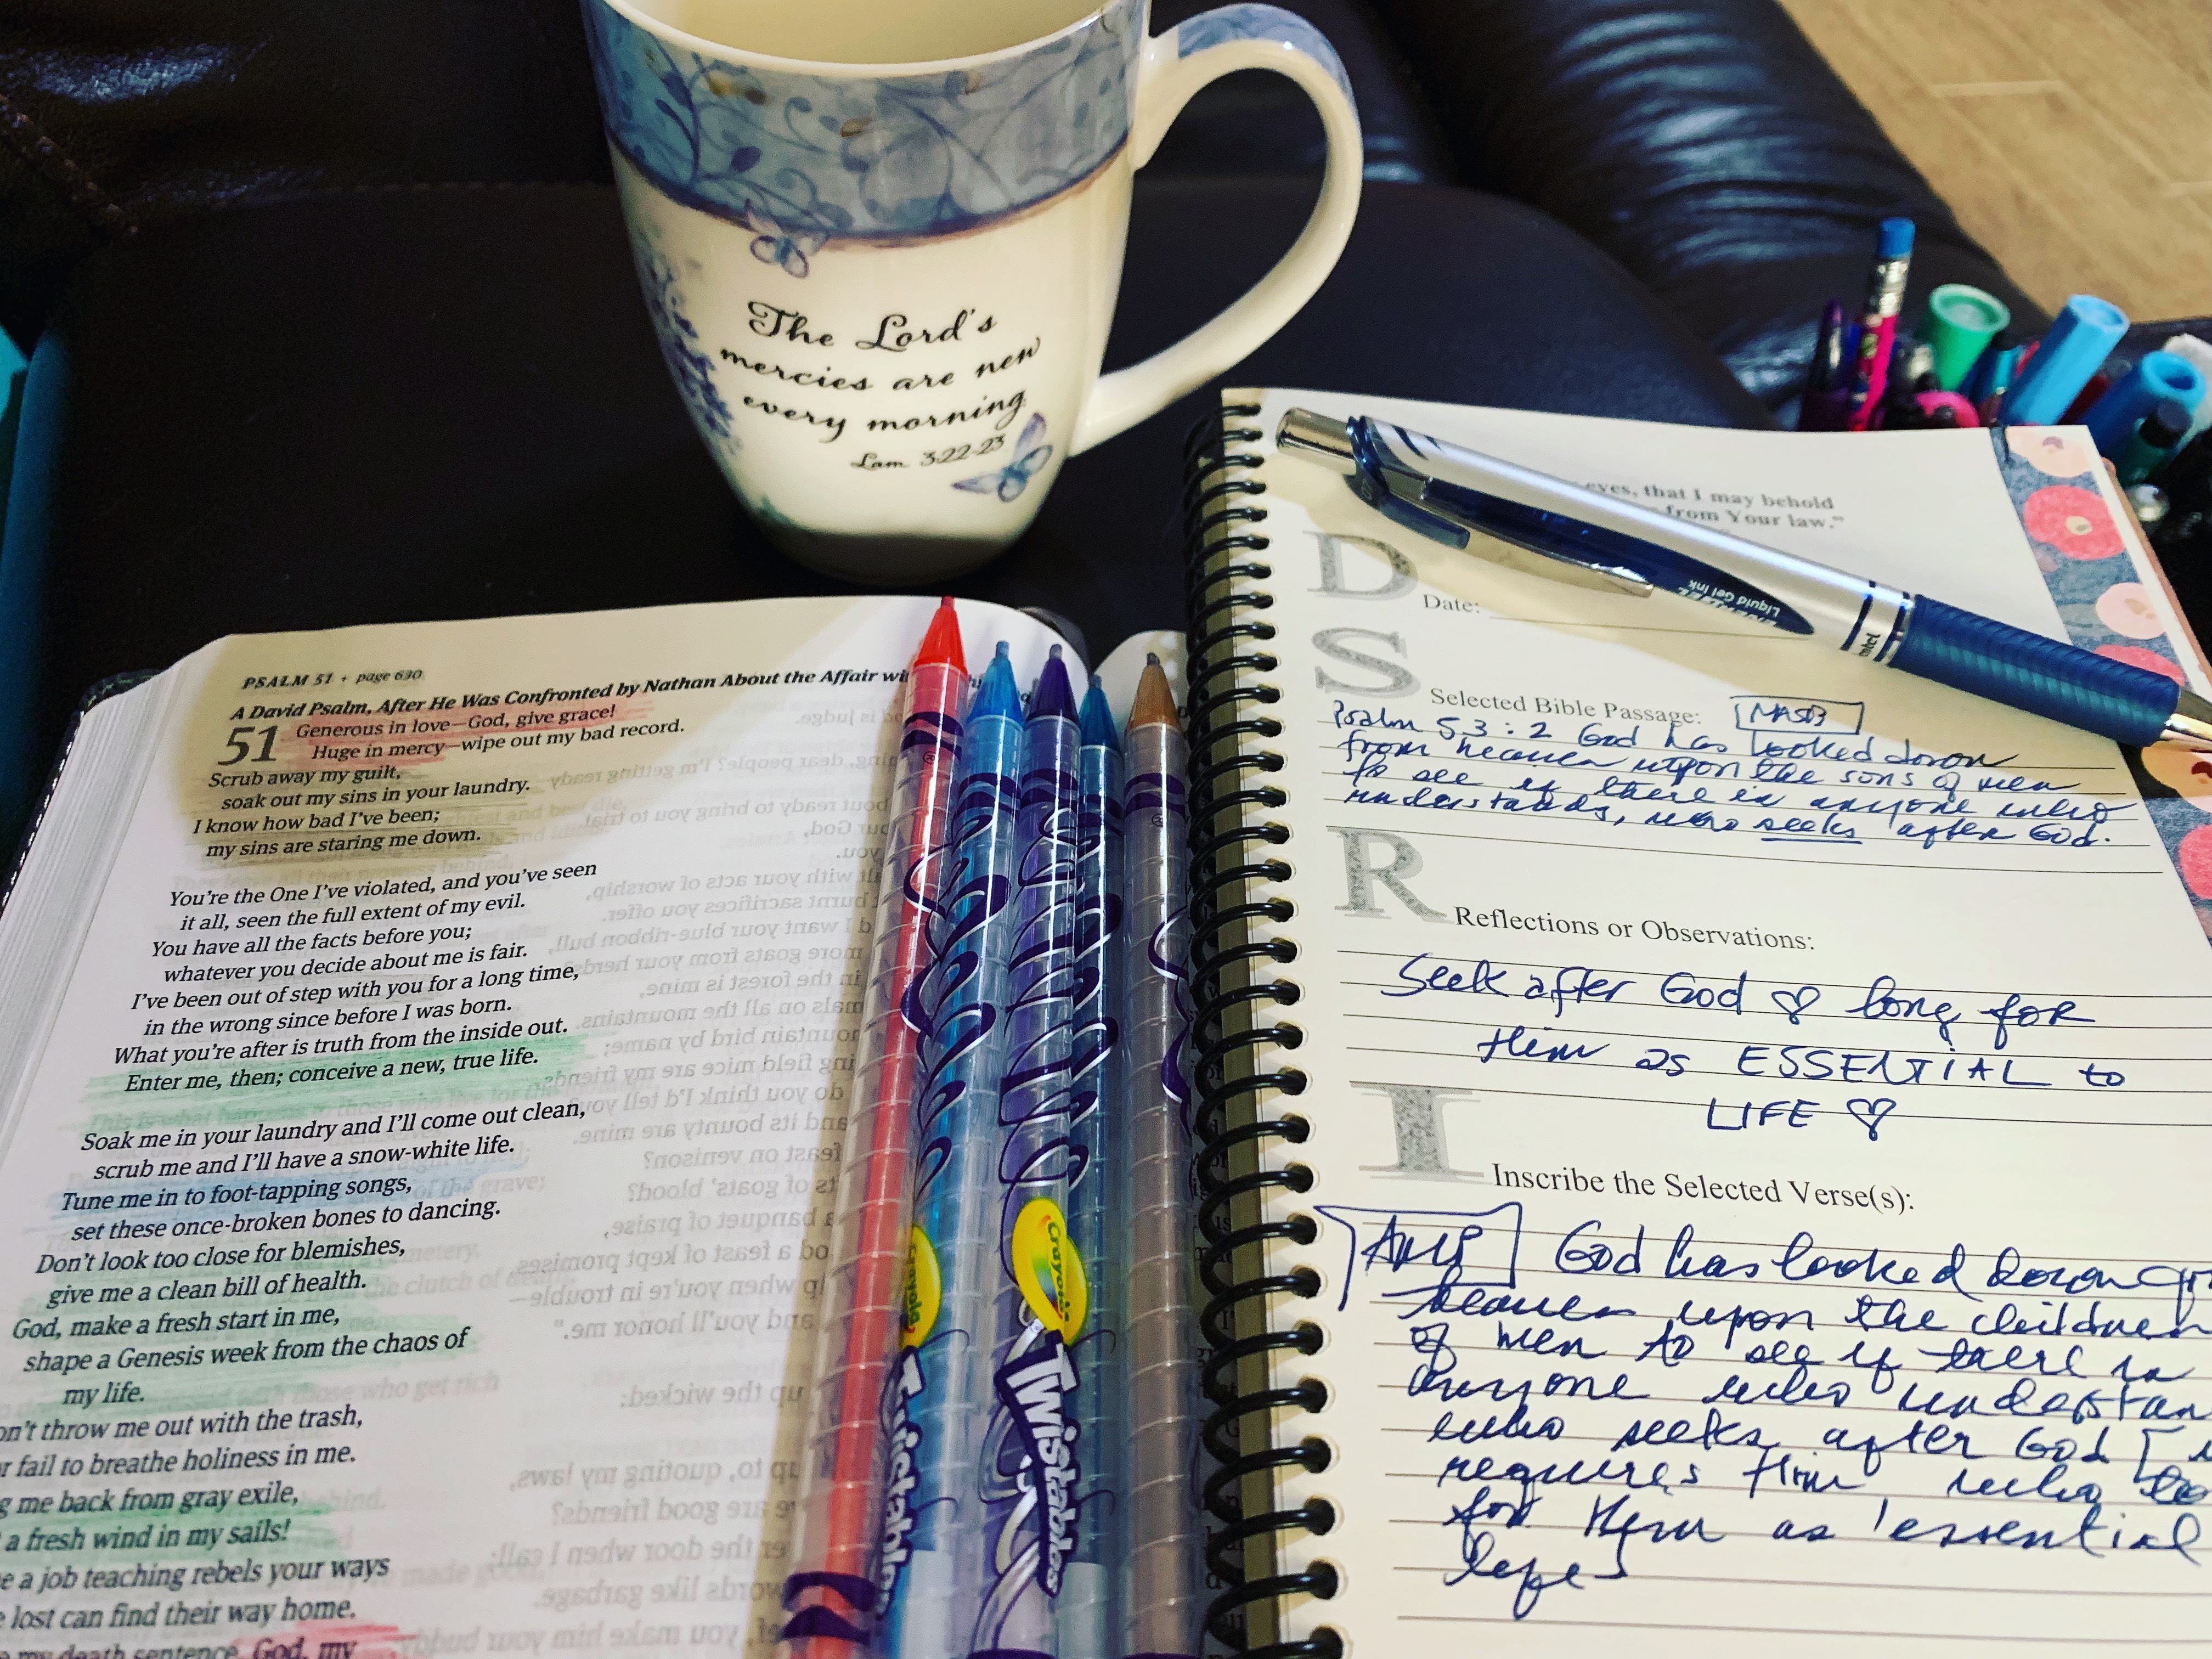 The Lord's
mercies are new
every morning
Lam 3:22-23
PSALM 51 • page 630
A David Psalm, After He Was Confronted by Nathan About the Affair
51
Generous in love—God, give grace!
Huge in mercy—wipe out my bad record.
Scrub away my guilt,
soak out my sins in your laundry.
I know how bad I've been;
my sins are staring me down.
You're the One I've violated, and you've seen
it all, seen the full extent of my evil.
You have all the facts before you;
whatever you decide about me is fair.
I've been out of step with you for a long time,
in the wrong since before I was born.
What you're after is truth from the inside out.
Enter me, then; conceive a new, true life.
Soak me in your laundry and I'll come out clean,
scrub me and I'll have a snow-white life.
Tune me in to foot-tapping songs,
set these once-broken bones to dancing.
Don't look too close for blemishes,
give me a clean bill of health.
God, make a fresh start in me,
shape a Genesis week from the chaos of
my life.
throw me out with the trash,
fail to breathe holiness in me.
me back from gray exile,
a fresh wind in my sails!
a job teaching rebels your ways
lost can find their way home.
my death sentence, God, my
Crayola
Twistables
Crayola
Twistables
eyes, that I may behold
from Your law."
Liquid Gel Ink
D
Date:
S
Selected Bible Passage: NASB
Psalm 53:2 God has looked down
from heaven upon the sons of men
to see if there is anyone who
understands, who seeks after God.
R
Reflections or Observations:
Seek after God ♡ long for
Him as ESSENTIAL to
LIFE ♡
I
Inscribe the Selected Verse(s):
AMP God has looked down
heaven upon the children
of men to see if there is
anyone who
who seeks after God [
requires Him, who
for Him as essential
life]